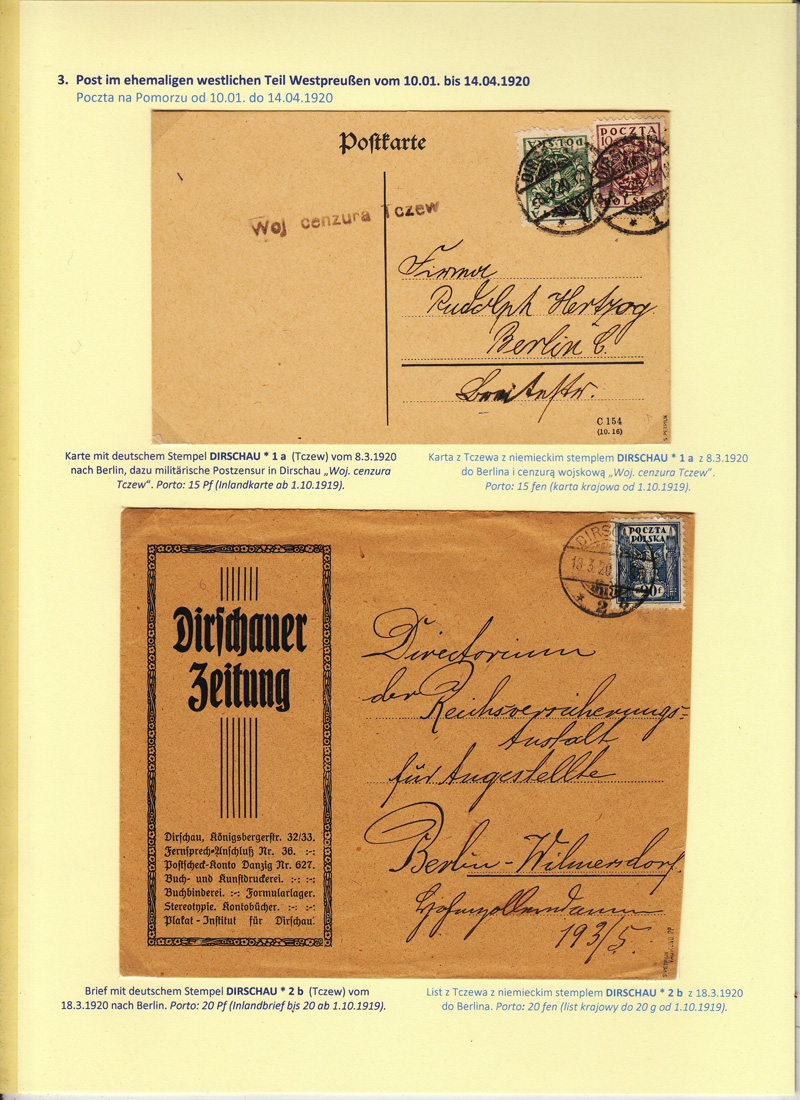 3. Post im ehemaligen westlichen Teil Westpreußen vom 10.01. bis 14.04.1920
Poczta na Pomorzu od 10.01. do 14.04.1920
Postkarte
POCZTA
10
POLSKA
Woj cenzura Tczew
Firma
Rudolph Hertzog
Berlin C.
Breitestr.
C 154
(10. 16)
Karte mit deutschem Stempel DIRSCHAU * 1 a (Tczew) vom 8.3.1920
nach Berlin, dazu militärische Postzensur in Dirschau „Woj. cenzura
Tczew“. Porto: 15 Pf (Inlandkarte ab 1.10.1919).
Karta z Tczewa z niemieckim stemplem DIRSCHAU * 1 a z 8.3.1920
do Berlina i cenzurą wojskową „Woj. cenzura Tczew”.
Porto: 15 fen (karta krajowa od 1.10.1919).
DIRSCHAU
18.3.20
* 2 b
POCZTA
POLSKA
20 f
Dirschauer
Zeitung
Dirschau, Königsbergerstr. 32/33.
Fernsprech-Anschluß Nr. 36. :-:
Postscheck-Konto Danzig Nr. 627.
Buch- und Kunstdruckerei. :-: :-:
Buchbinderei. :-: Formularlager.
Stereotypie. Kontobücher. :-: :-:
Plakat-Institut für Dirschau.
Directorium
der Reichsversicherungs-
Anstalt
für Angestellte
Berlin-Wilmersdorf.
Hohenzollerndamm
193/5.
Brief mit deutschem Stempel DIRSCHAU * 2 b (Tczew) vom
18.3.1920 nach Berlin. Porto: 20 Pf (Inlandbrief bjs 20 ab 1.10.1919).
List z Tczewa z niemieckim stemplem DIRSCHAU * 2 b z 18.3.1920
do Berlina. Porto: 20 fen (list krajowy do 20 g od 1.10.1919).